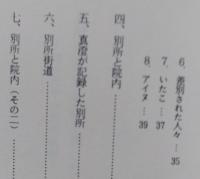 6、差別された人々…35
7、いたこ…37
8、アイヌ…39
四、別所と院内…………
五、真澄が記録した別所…………
六、別所街道…………
七、別所と院内（その二）…………